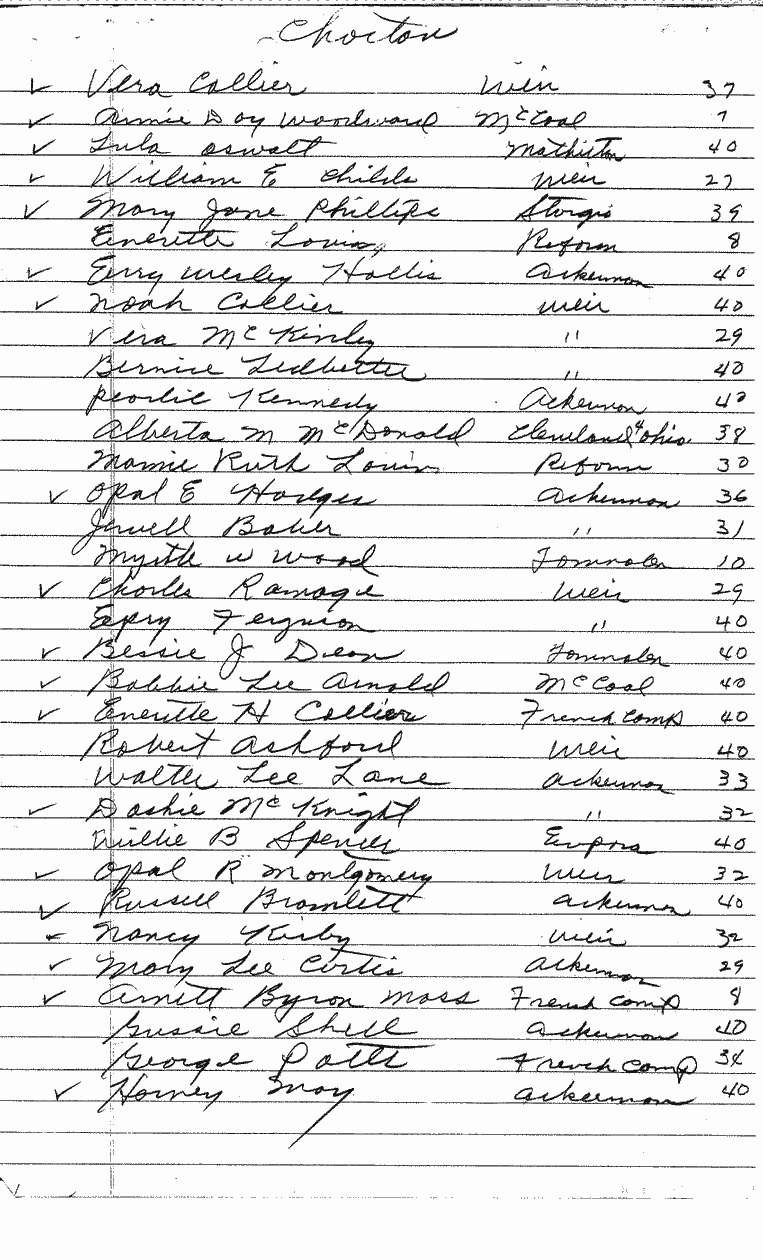 Choctaw
✓ Vera Collier Weir 37
✓ Annie Doy Woodward McCool 7
✓ Lula Oswalt Mathiston 40
✓ William E Childs Weir 27
✓ Mary Jane Phillips Sturgis 39
Everette Louis, Reform 8
✓ Erry Wesley Hollis Ackerman 40
✓ Noah Collier Weir 40
Vera McKinley " 29
Bernice Ledbetter " 40
Pearlie Kennedy Ackerman 40
Alberta M McDonald Cleveland Ohio 38
Mamie Ruth Louis Reform 30
✓ Opal E Hodges Ackerman 36
Jewell Baker " 31
Myrtle W Wood Tomnolen 10
✓ Charles Ramage Weir 29
Ferguson " 40
✓ Bessie J Dean Tomnolen 40
✓ Bobbie Lee Arnold McCool 40
✓ Everette H Collier French Camp 40
Robert Ashford Weir 40
Walter Lee Lane Ackerman 33
✓ Dashie McKnight " 32
Willie B Spencer Eupora 40
✓ Opal R Montgomery Weir 32
✓ Russell Bramlett Ackerman 40
✓ Nancy Kirby Weir 32
✓ Mary Lee Curtis Ackerman 29
✓ Arnett Byron Moss French Camp 8
Gussie Shell Ackerman 40
George Potts French Camp 34
✓ Harvey May Ackerman 40